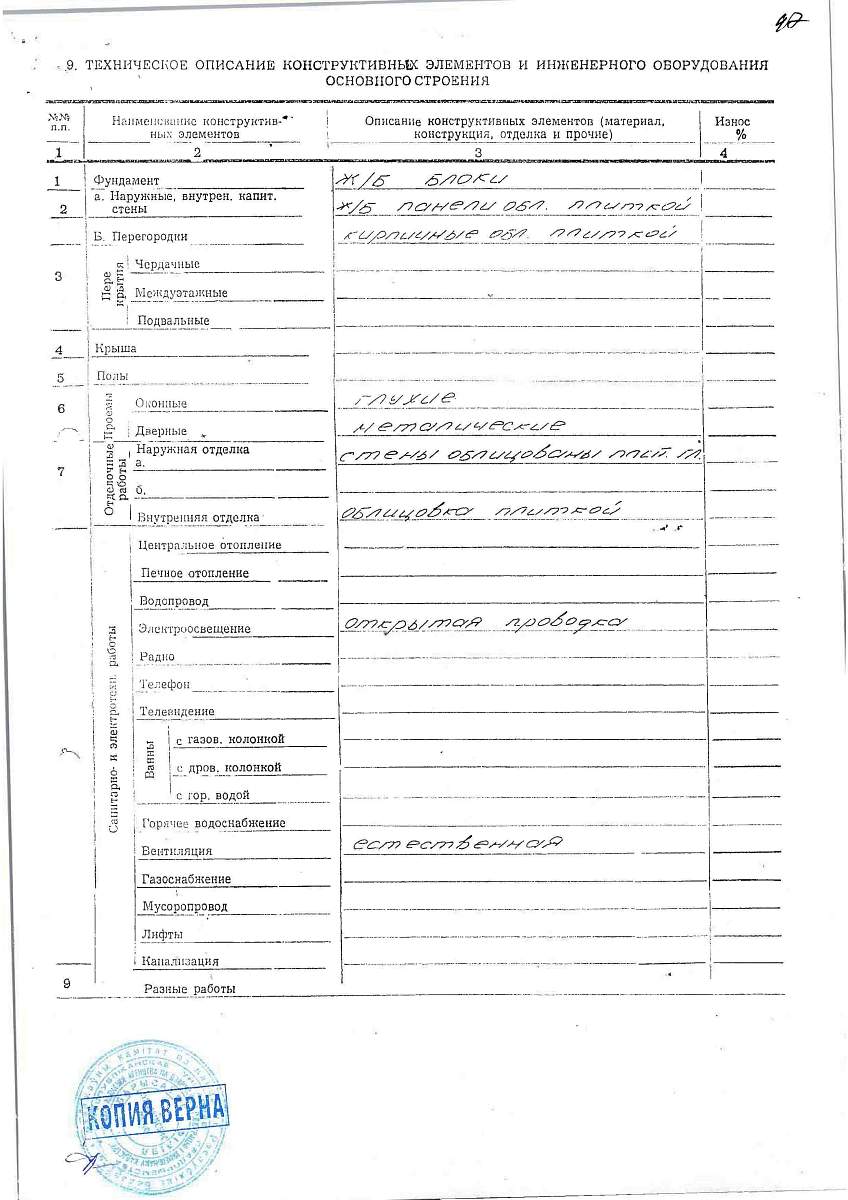 9. ТЕХНИЧЕСКОЕ ОПИСАНИЕ КОНСТРУКТИВНЫХ ЭЛЕМЕНТОВ И ИНЖЕНЕРНОГО ОБОРУДОВАНИЯ
ОСНОВНОГО СТРОЕНИЯ
№№ п.п.
Наименование конструктив-
ных элементов
Описание конструктивных элементов (материал,
конструкция, отделка и прочие)
Износ
%
1 2 3 4
1 Фундамент Ж/Б БЛОКИ
2 а. Наружные, внутрен. капит.
стены ж/б панели обл. плиткой
Б. Перегородки кирпичные обл. плиткой
3 Пере
крытия
Чердачные
Междуэтажные
Подвальные
4 Крыша
5 Полы
6 Проемы
Оконные глухие
Дверные металические
7 Отделочные
работы
Наружная отделка
а. стены облицованы
б.
Внутренняя отделка облицовка плиткой
Санитарно- и электротехн. работы
Центральное отопление
Печное отопление
Водопровод
Электроосвещение открытая проводка
Радио
Телефон
Телевидение
Ванны
с газов. колонкой
с дров. колонкой
с гор. водой
Горячее водоснабжение
Вентиляция естественная
Газоснабжение
Мусоропровод
Лифты
Канализация
9 Разные работы
КОПИЯ ВЕРНА